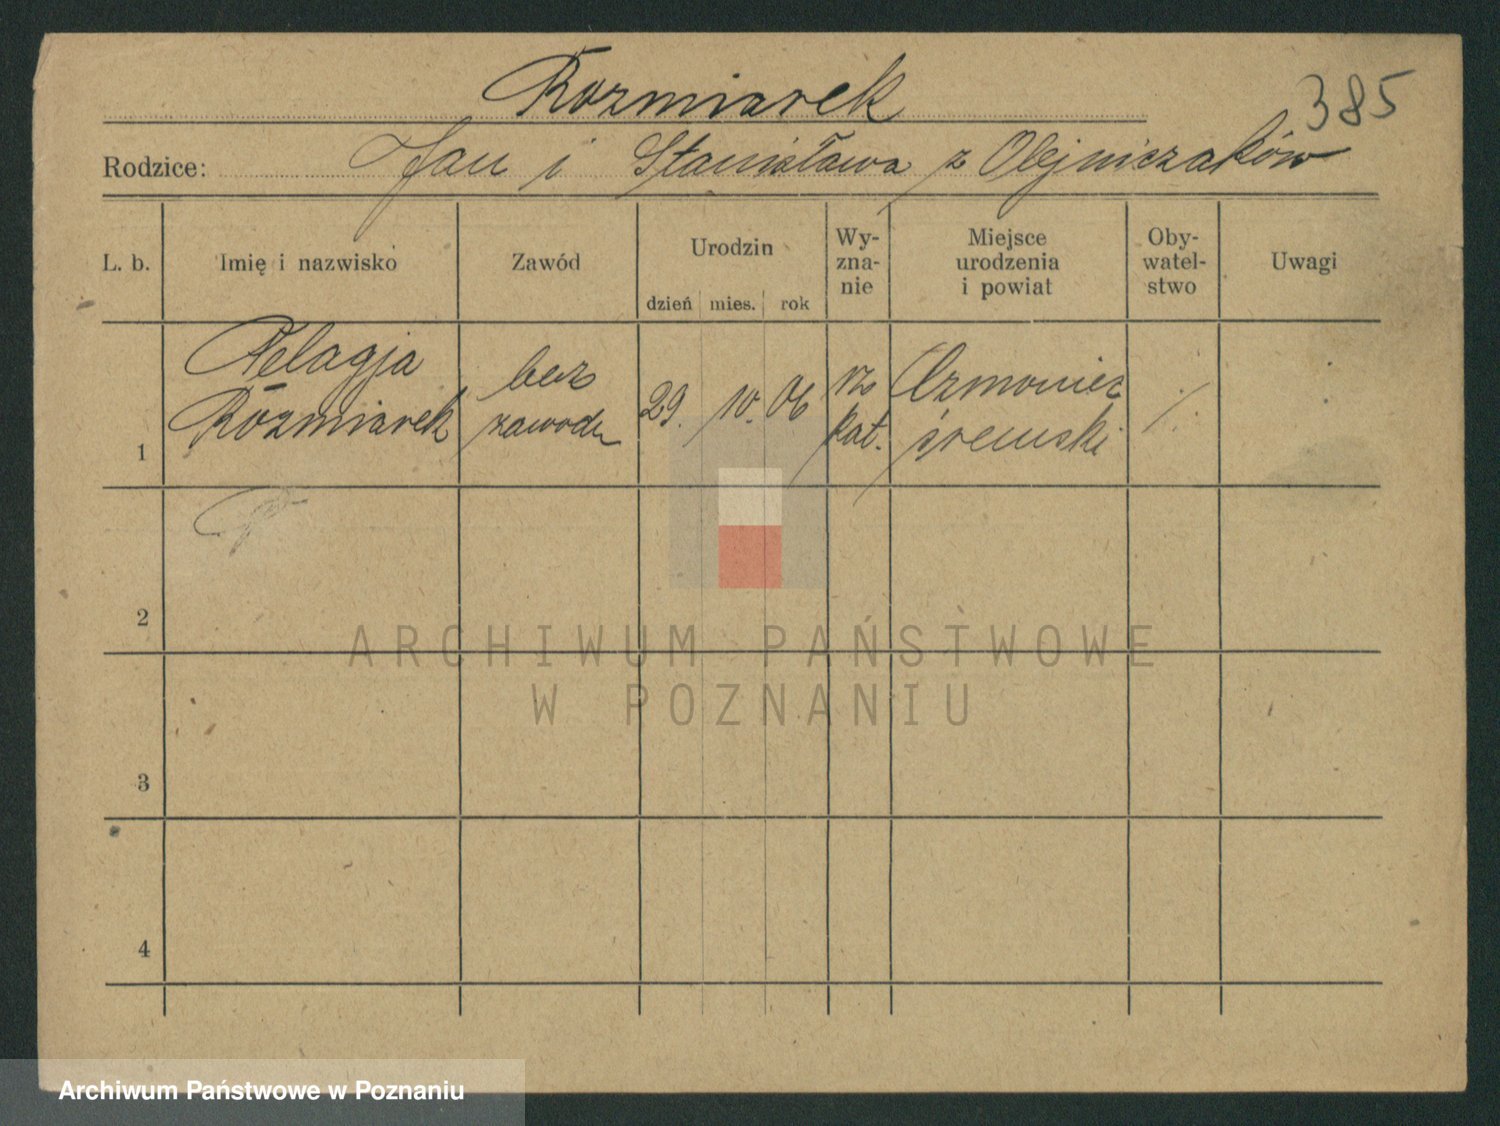 Rozmiarek
385
Rodzice: Jan i Stanisława z Olejniczaków
L. b.
Imię i nazwisko
Zawód
Urodzin
dzień mies. rok
Wy-
zna-
nie
Miejsce
urodzenia
i powiat
Oby-
watel-
stwo
Uwagi
1
Pelagja
Rozmiarek
bez
zawodu
29. 10. 06
rz
kat.
śremski
2
3
4
ARCHIWUM PAŃSTWOWE
W POZNANIU
Archiwum Państwowe w Poznaniu